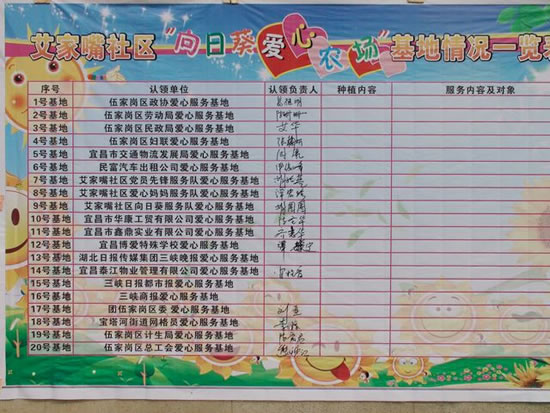 艾家嘴社区"向日葵爱心农场"基地情况一览
序号 认领单位 认领负责人 种植内容 服务内容及对象
1号基地 伍家岗区政协爱心服务基地
2号基地 伍家岗区劳动局爱心服务基地
3号基地 伍家岗区民政局爱心服务基地 艾华
4号基地 伍家岗区妇联爱心服务基地
5号基地 宜昌市交通物流发展局爱心服务基地
6号基地 民富汽车出租公司爱心服务基地
7号基地 艾家嘴社区党员先锋服务队爱心服务基地
8号基地 艾家嘴社区爱心妈妈服务队爱心服务基地
9号基地 艾家嘴社区向日葵服务队爱心服务基地
10号基地 宜昌市华康工贸有限公司爱心服务基地
11号基地 宜昌市鑫鼎实业有限公司爱心服务基地
12号基地 宜昌博爱特殊学校爱心服务基地
13号基地 湖北日报传媒集团三峡晚报爱心服务基地
14号基地 宜昌泰江物业管理有限公司爱心服务基地
15号基地 三峡日报都市报爱心服务基地
16号基地 三峡商报爱心服务基地
17号基地 团伍家岗区委 爱心服务基地
18号基地 宝塔河街道网格员爱心服务基地
19号基地 伍家岗区计生局爱心服务基地
20号基地 伍家岗区总工会爱心服务基地